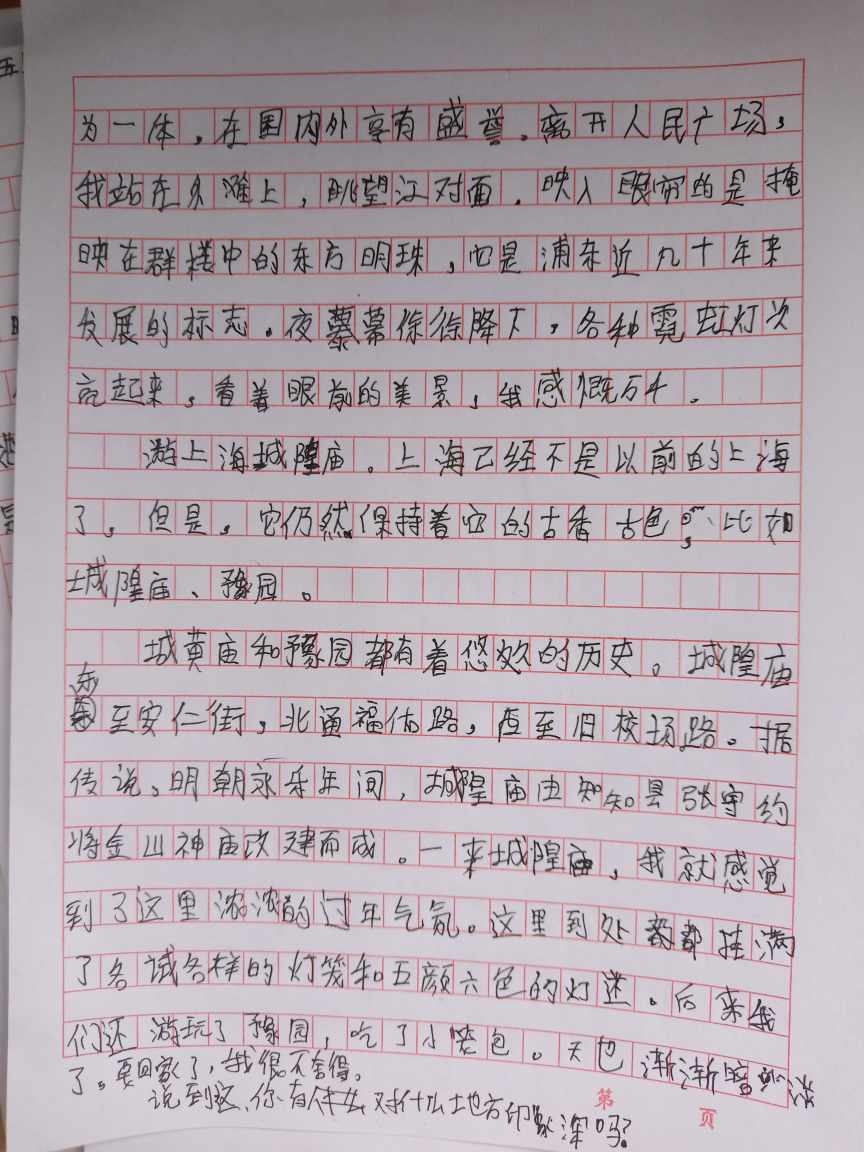 为一体，在国内外享有盛誉。离开人民广场，
我站在外滩上，眺望江对面，映入眼帘的是掩
映在群楼中的东方明珠，它是浦东近九十年来
发展的标志。夜幕徐徐降下，各种霓虹灯次
亮起来，看着眼前的美景，我感慨万千。
游上海城隍庙。上海已经不是以前的上海
了。但是，它仍然保持着它的古香古色，比如
城隍庙、豫园。
城黄庙和豫园都有着悠久的历史。城隍庙
东至安仁街，北通福佑路，西至旧校场路。据
传说，明朝永乐年间，城隍庙由知知县张守约
将金山神庙改建而成。一来城隍庙，我就感觉
到了这里浓浓的过年气氛。这里到处都挂满
了各试各样的灯笼和五颜六色的灯迷。后来我
们还游玩了豫园，吃了小笼包。天也渐渐暗
了。要回家了，我很不舍得。
说到这，你有对什么地方印象深吗？
第 页